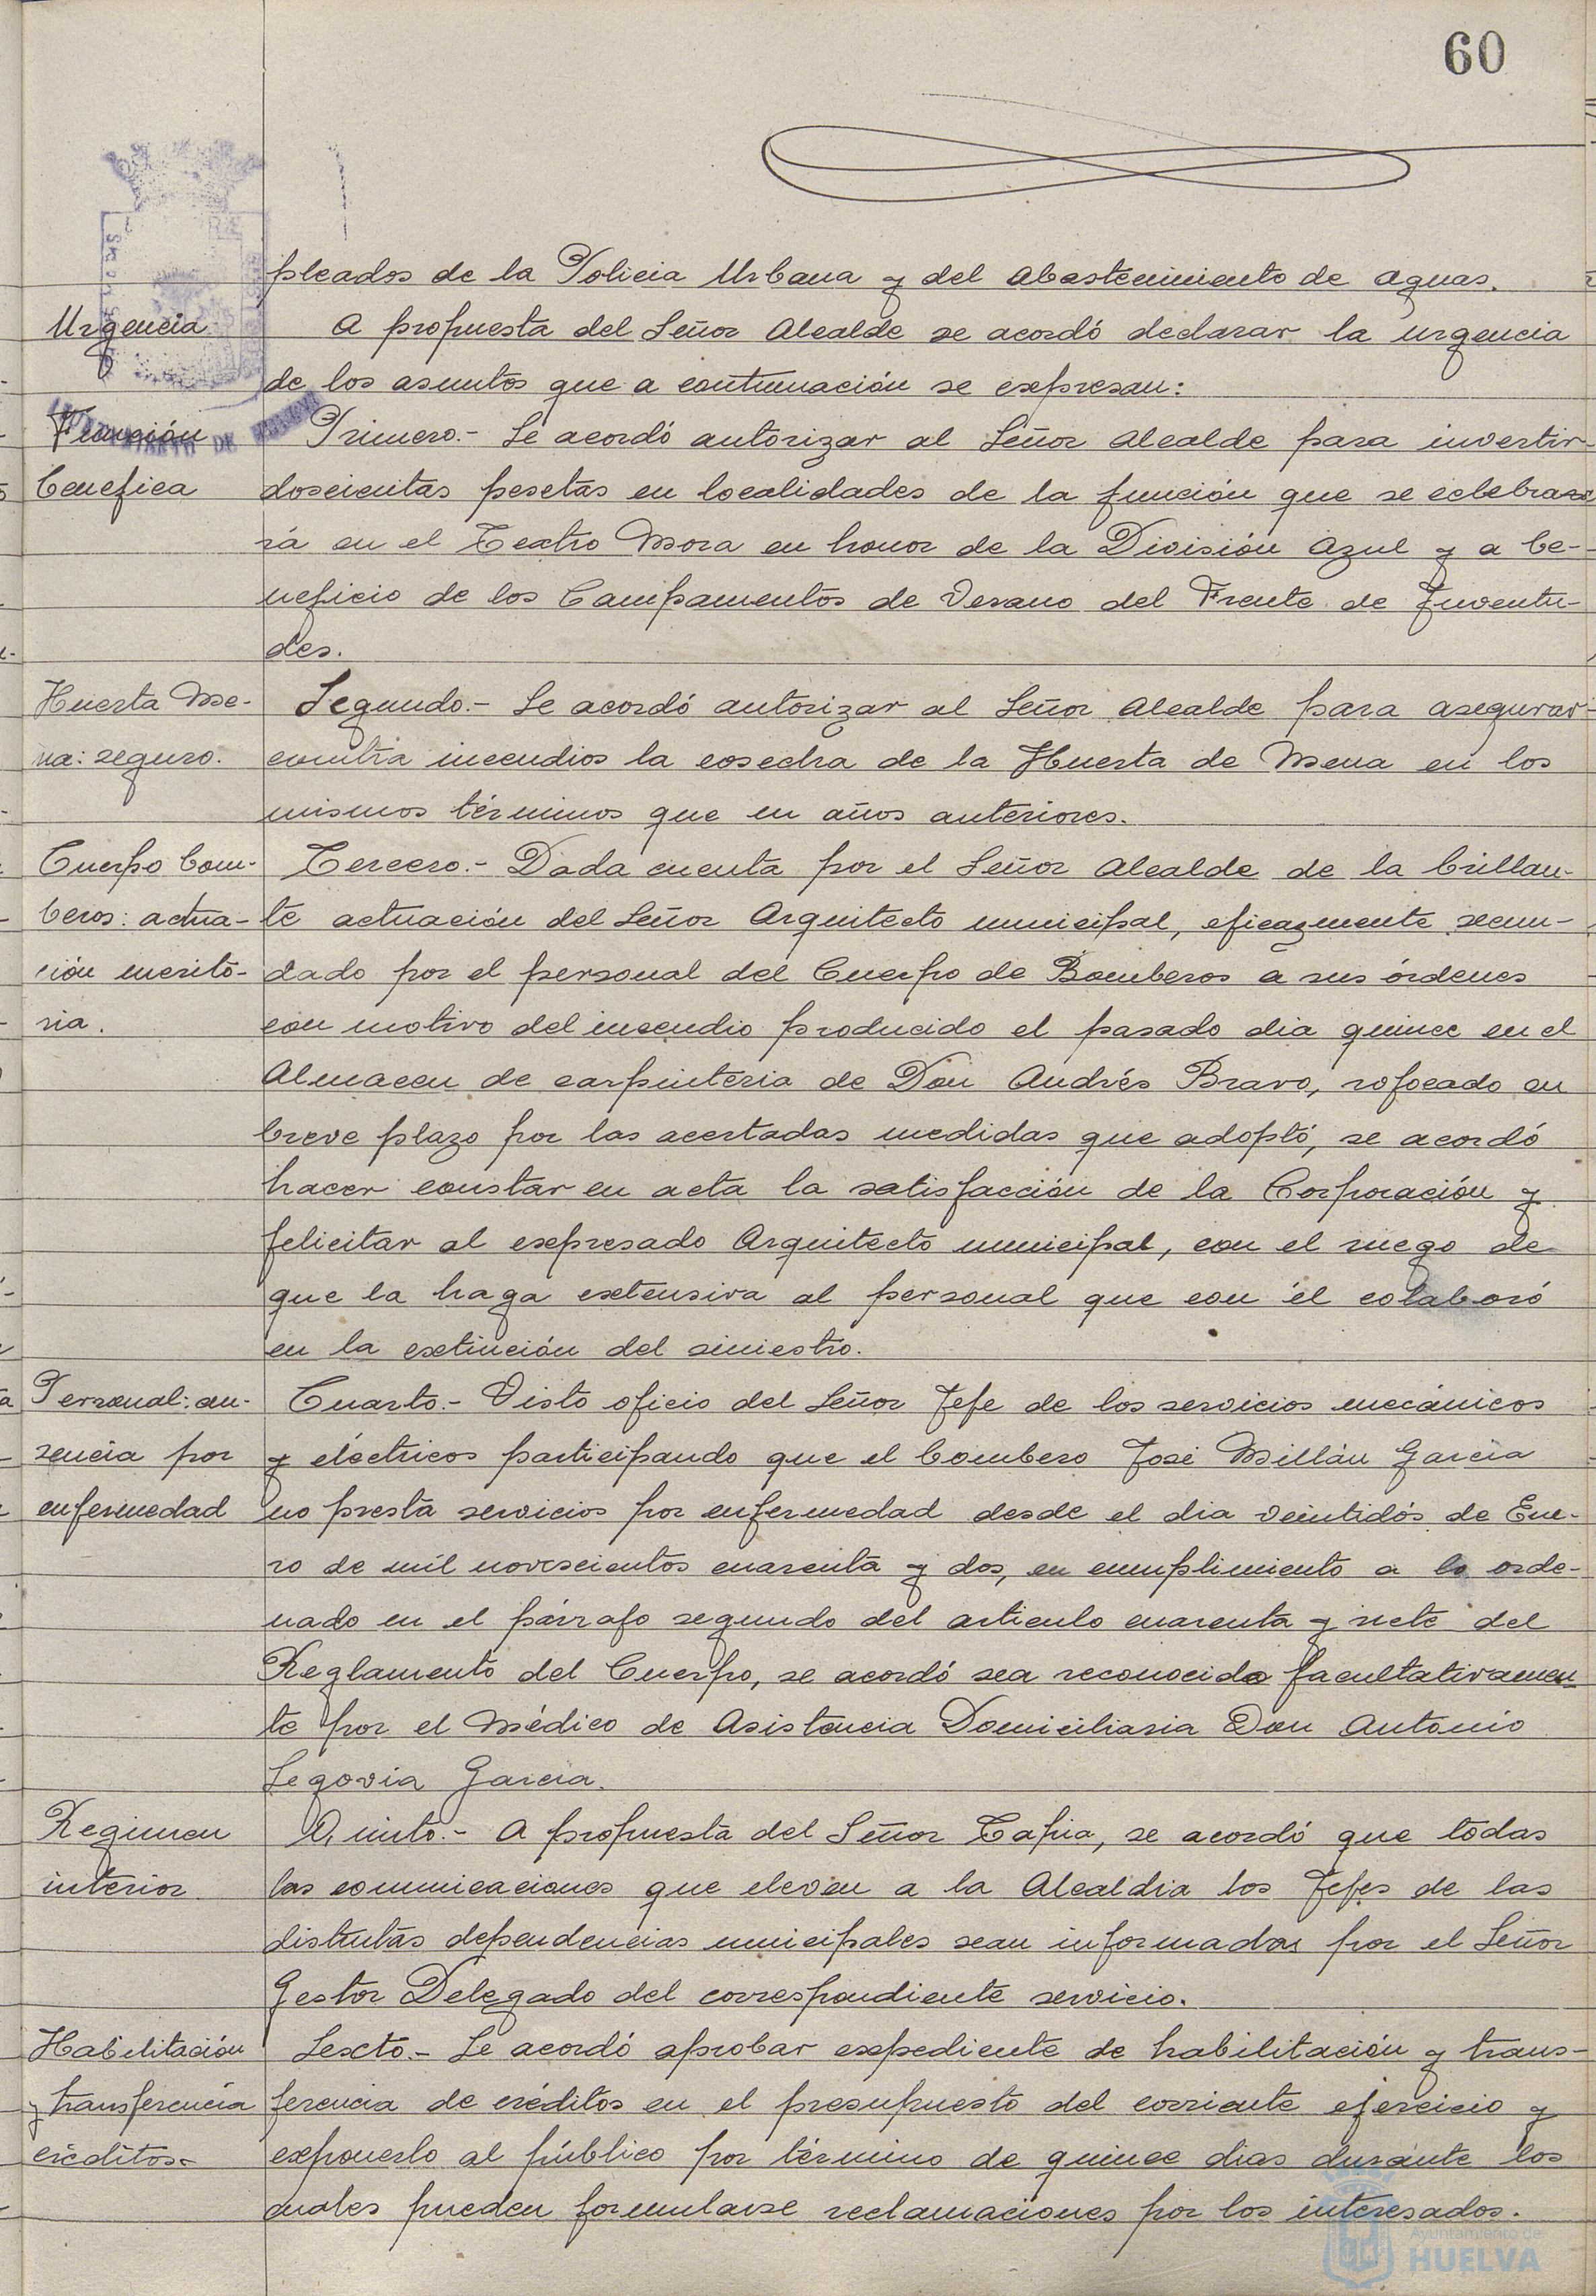 60
pleados de la Policia Urbana y del abastecimiento de aguas.
Urgencia
A propuesta del Señor Alcalde se acordó declarar la urgencia
de los asuntos que a continuación se expresan:
Función
benefica
Primero.- Se acordó autorizar al Señor Alcalde para invertir
doscientas pesetas en localidades de la función que se celebra
rá en el Teatro Mora en honor de la División Azul y a be-
neficio de los Campamentos de Verano del Frente de Juventu-
des.
Huerta Me-
na: seguro.
Segundo.- Se acordó autorizar al Señor Alcalde para asegurar
contra incendios la cosecha de la Huerta de Mena en los
mismos términos que en años anteriores.
Cuerpo bom-
beros: actua-
ción merito-
ria.
Tercero.- Dada cuenta por el Señor Alcalde de la brillan-
te actuación del Señor Arquitecto municipal, eficazmente secun-
dado por el personal del Cuerpo de Bomberos a sus órdenes
con motivo del incendio producido el pasado dia quince en el
Almacen de carpinteria de Don Andrés Bravo, sofocado en
breve plazo por las acertadas medidas que adoptó, se acordó
hacer constar en acta la satisfacción de la Corporación y
felicitar al expresado Arquitecto municipal, con el ruego de
que la haga extensiva al personal que con él colaboró
en la extinción del siniestro.
Personal: au-
sencia por
enfermedad
Cuarto.- Visto oficio del Señor Jefe de los servicios mecánicos
y eléctricos participando que el bombero José Millán Garcia
no presta servicios por enfermedad desde el dia veintidós de Ene-
ro de mil novescientos cuarenta y dos, en cumplimiento a lo orde-
nado en el párrafo segundo del articulo cuarenta y siete del
Reglamento del Cuerpo, se acordó sea reconocido facultativamen-
te por el Médico de Asistencia Domiciliaria Don Antonio
Segovia Garcia.
Regimen
interior.
Quinto.- A propuesta del Señor Tapia, se acordó que todas
las comunicaciones que eleven a la Alcaldia los Jefes de las
distintas dependencias municipales sean informadas por el Señor
Gestor Delegado del correspondiente servicio.
Habilitación
y transferencia
créditos.-
Sexto.- Se acordó aprobar expediente de habilitación y trans-
ferencia de créditos en el presupuesto del corriente ejercicio y
exponerlo al público por término de quince dias durante los
cuales pueden formularse reclamaciones por los interesados.
Ayuntamiento de
HUELVA